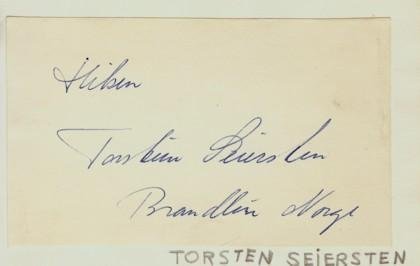 Hilsen
Torstein Seiersten
Brandbu Norge
TORSTEN SEIERSTEN